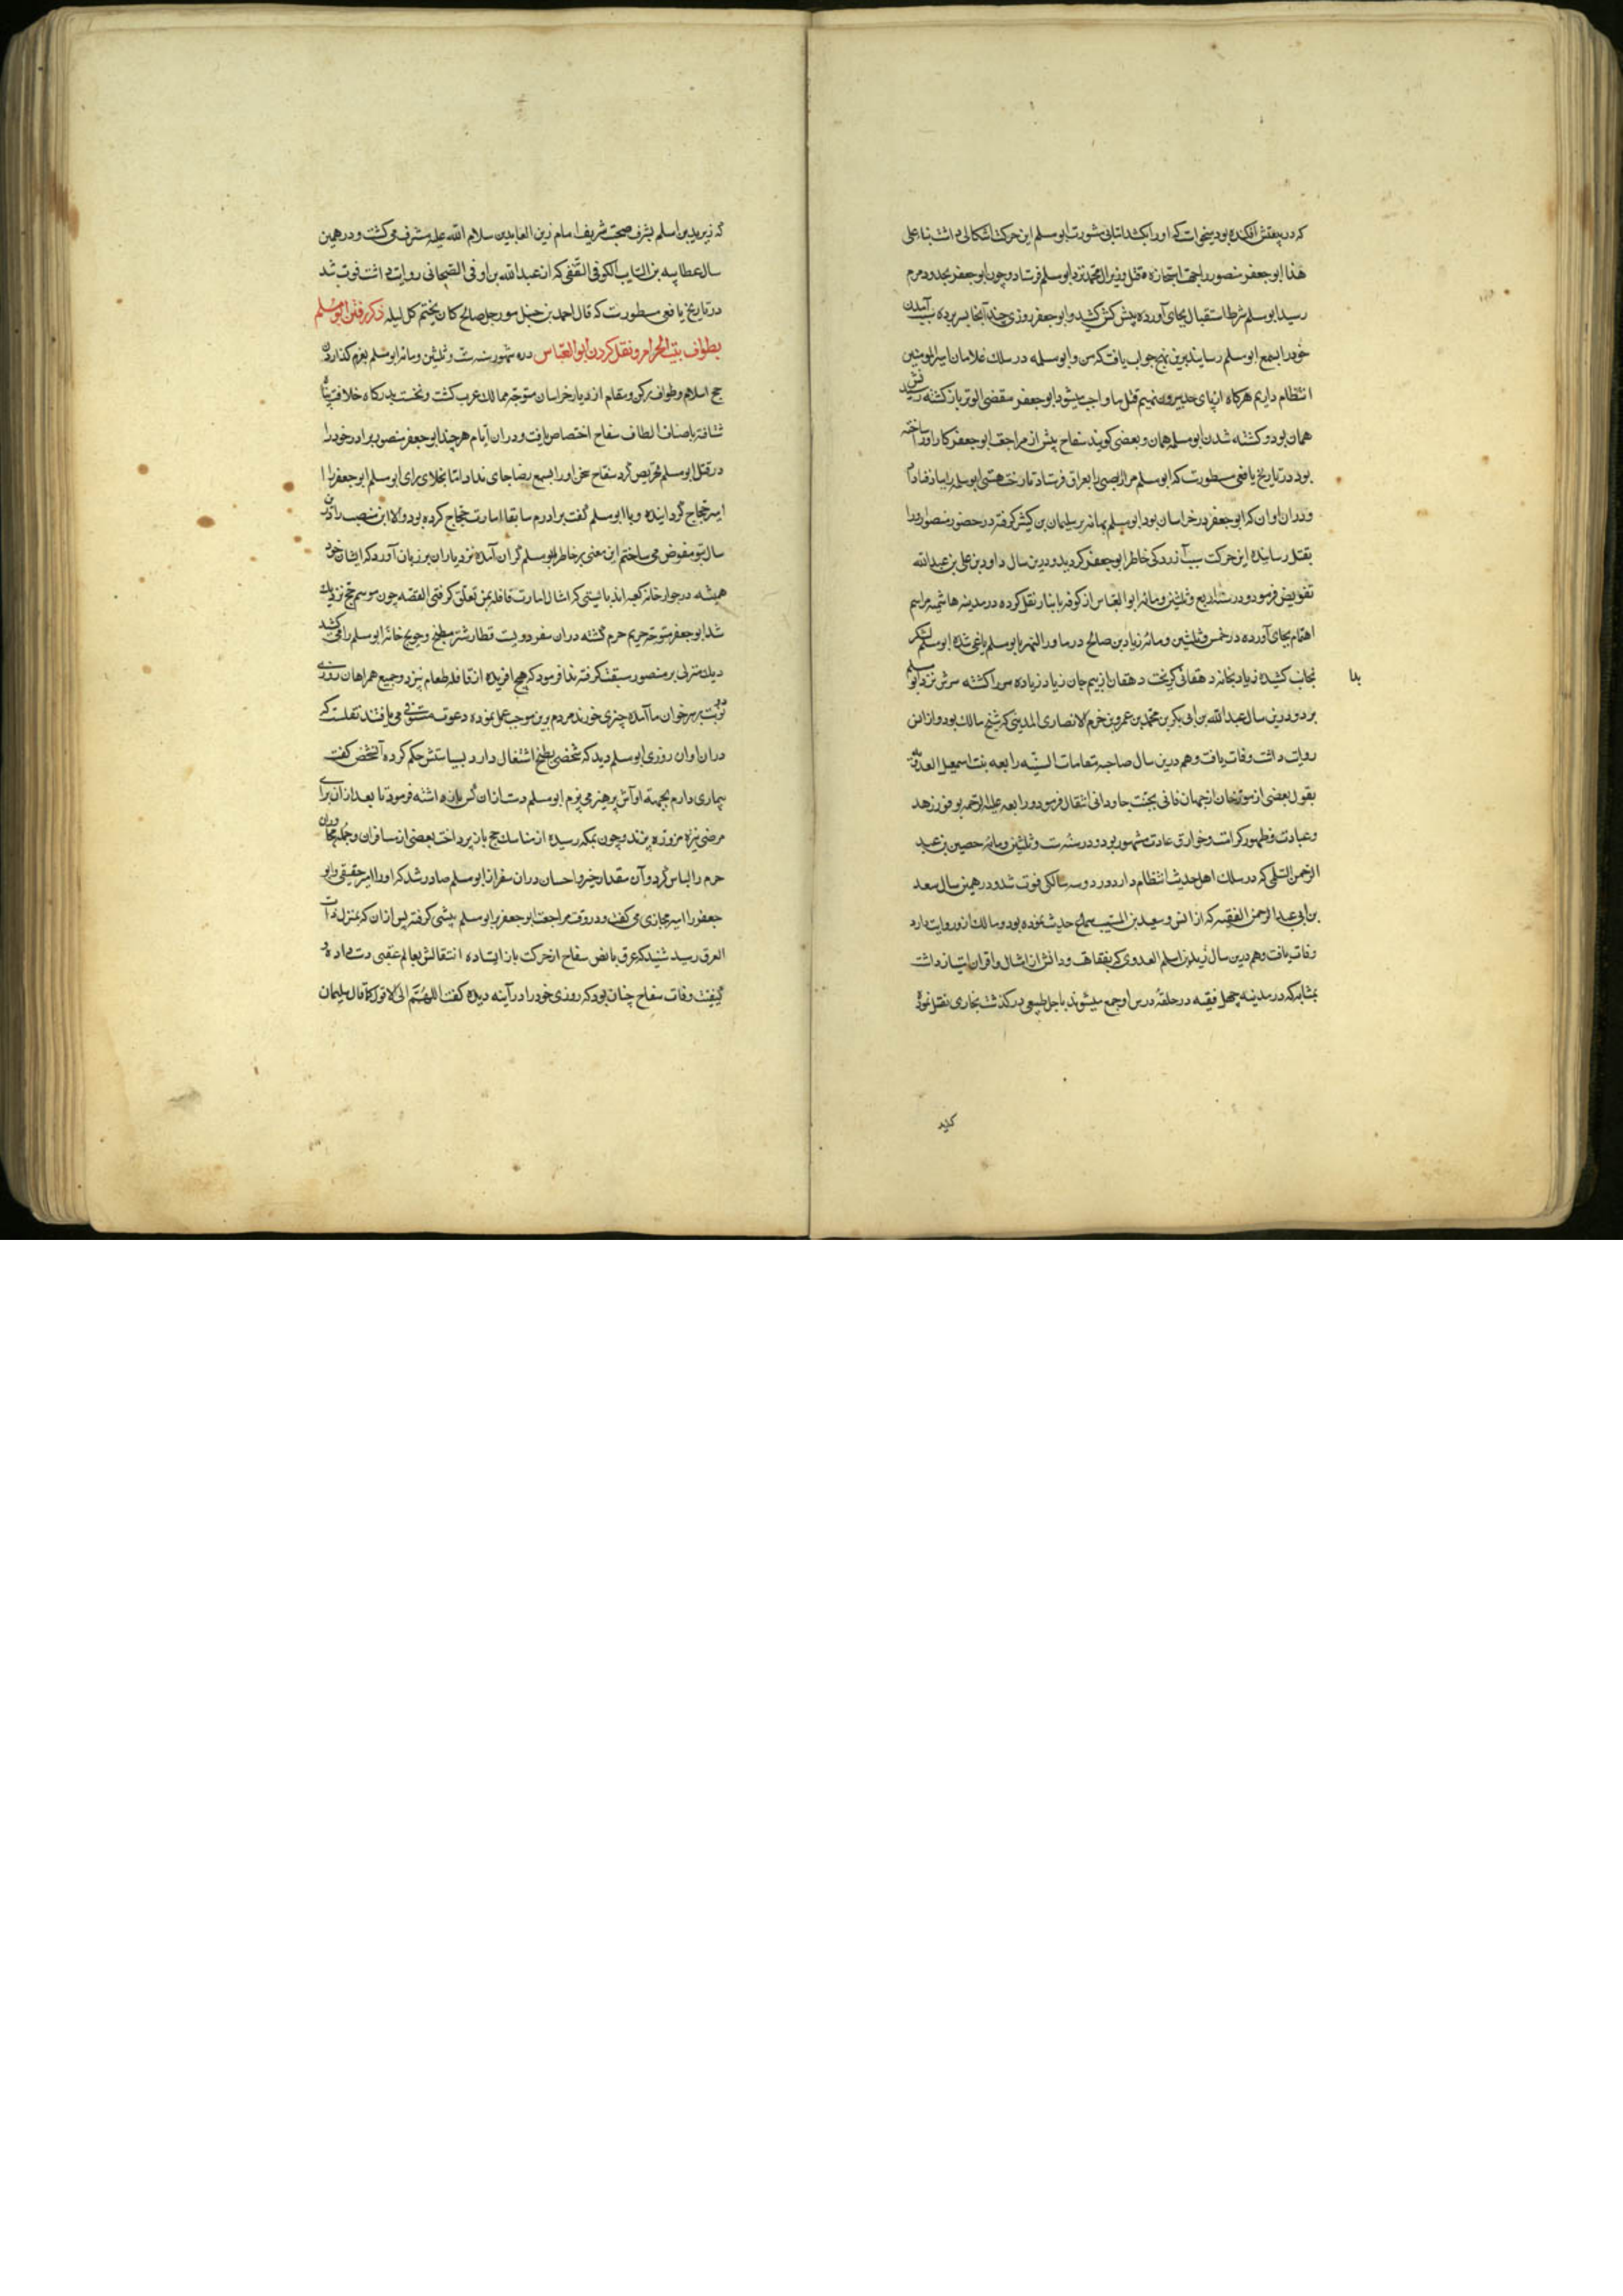 که در پیعتش افکنده بود میخواست که او را بکشد اما بی مشورت ابو مسلم این حرکت اشکالی داشت بناء علی
هذا ابو جعفر منصور را جهت استجازه قتل وزیر ال محمد نزد ابو مسلم فرستاد و چون ابو جعفر بحدود مرو
رسید ابو مسلم شرط استقبال بجای آورده پیش کش کشید و ابو جعفر روزی چند آنجا بسر برده سبب آمدن
خود را بسمع ابو مسلم رسانید برین نهج جواب یافت که من و ابو سلمه در سلک غلامان امیر المومنین
انتظام داریم هرگاه از پای بیرون نهیم قتل ما واجب میشود ابو جعفر مقضی الوتر بازگشته
همان بود و کشته شدن ابو سلمه همان و بعضی گویند سفاح پیش از مراجعت ابو جعفر کار او ساخته
بود در تاریخ یافعی مسطورست که ابو مسلم مرار بصبی را بعراق فرستاد تا رخت هستی ابو سلمه را بباد فنا داد
و در ان اوان که ابو جعفر در خراسان بود ابو مسلم بهانه بر سلیمان بن کثیر گرفته در حضور منصور او را
بقتل رسانید و این حرکت سبب آزردگی خاطر ابو جعفر گردید و درین سال داود بن علی بن عبد الله
تفویض فرمود و در سنه اربع و ثلثین و مائه ابو العباس از کوفه بانبار نقل کرده در مدینه هاشمیه مراسم
اهتمام بجای آورده در خمس و ثلثین و مائه زیاد بن صالح در ماوراء النهر با ابو مسلم یاغی شده ابو مسلم لشکر
بجانب کشیده زیاد بخانه دهقانی گریخت دهقان از بیم جان زیاد زیاده سر را کشته سرش نزد ابو مسلم
بدا
برد و درین سال عبد الله بن ابی بکر بن محمد بن عمرو بن حزم الانصاری المدینی که شیخ مالک بود و از انس
روایت داشت وفات یافت و هم درین سال صاحبه مقامات السنیه رابعه بنت اسمعیل العدویه
بقول بعضی از مورخان از جهان فانی بجنت جاودانی انتقال فرمود و رابعه علیها الرحمه بوفور زهد
و عبادت و ظهور کرامت و خوارق عادت مشهور بود و در سنه ست و ثلثین و مائه حصین بن عبد
الرحمن السلمی که در سلک اهل حدیث انتظام دارد در نود و سه سالگی فوت شد و در همین سال سعد
بن ابی عبد الرحمن الفقیه که از انس و سعید بن المسیب سماع حدیث نموده بود و مالک از و روایت دارد
وفات یافت و هم درین سال زید بن اسلم العدوی که بفقاهت و دانش از امثال و اقران امتیاز داشت
بمثابه که در مدینه چهل فقیه در حلقه درس او جمع میشوند باجل طبیعی درگذشت بخاری نقل نموده
که زید بن اسلم بشرف صحبت شریف امام زین العابدین سلام الله علیه مشرف می گشت و در همین
سال عطا بن السایب الکوفی الثقفی که از عبد الله بن اوفی الصحابی روایت داشت فوت شد
در تاریخ یافعی مسطورست که قال احمد بن حنبل هو رجل صالح کان یختم کل لیله ذکر رفتن ابو مسلم
بطواف بیت الحرام و نقل کردن ابو العباس در شهور سنه ست و ثلثین و مائه ابو مسلم بعزم گذاردن
حج اسلام و طواف رکن و مقام از دیار خراسان متوجه ممالک عرب گشت و نخست بدرگاه خلافت پناه
شتافته باصناف الطاف سفاح اختصاص یافت و در ان ایام هر چند ابو جعفر منصور برادر خود را
در قتل ابو مسلم تحریص کرد سفاح سخن او را بسمع رضا جای نداد اما بخلاف رای ابو مسلم ابو جعفر را
امیر حجاج گردانیده و با ابو مسلم گفت برادرم سابقا امارت حجاج کرده بود و الا این منصب را درین
سال بتو مفوض می ساختم این معنی بر خاطر ابو مسلم گران آمده نزد یاران بر زبان آورد که ایشان خود
همیشه در جوار خانه کعبه اند بایستی که امسال امارت قافله بمن تعلق گرفتی القصه چون موسم حج نزدیک
شد ابو جعفر متوجه حریم حرم گشته در ان سفر دویست قطار شتر مطبخ و حویج خانه ابو مسلم را می کشید
و یک منزل بر منصور سبقت گرفته ندا فرمود که هیچ افریده از قافله طعام نپزد و جمیع همراهان روزی
دو نوبت بر سر خوان ما آمده چیزی خورند مردم برین موجب عمل نموده دعوت مستوفی می یافتند نقلست که
در ان اوان روزی ابو مسلم دید که شخصی بطبخ اشتغال دارد بسیاستش حکم کرده آنشخص گفت
بیماری دارم بجهة او آش پرهیز می پزم ابو مسلم دست ازان کس بازداشته فرمود تا بعد ازان برای
مرضی نیزه مزوره پزند و چون بمکه رسیده از مناسک حج باز پرداخت بعضی از مسافران و جمله مجاوران
حرم را الباس کرد و آن مقدار خیر و احسان در ان سفر از ابو مسلم صادر شد که او را امیر حقیقی و ابو
جعفر را امیر مجازی می گفتند و در وقت مراجعت ابو جعفر بر ابو مسلم پیشی گرفته پس ازان که بمنزل ذات
العرق رسید شنید که عرق نابض سفاح از حرکت باز ایستاده انتقالش بعالم عقبی دست داده و
کیفیت وفات سفاح چنان بود که روزی خود را در آینه دیده گفت اللهم انی لا اقول کما قال سلیمان